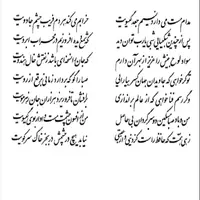 مدامم مست می دارد نسیم جعد گیسویت خرابم می کند هر دم فریب چشم جادویت
پس از چندین شکیبایی شبی یارب توان دیدن که شمع دیده افروزیم در محراب ابرویت
سواد لوح بینش را عزیز از بهر آن دارم که جان را نسخه ای باشد ز نقش خال هندویت
تو گر خواهی که جاویدان جهان یکسر بیارایی صبا را گو که بردارد زمانی برقع از رویت
و گر رسم فنا خواهی که از عالم براندازی برافشان تا فرو ریزد هزاران جان ز هر مویت
من و باد صبا مسکین دو سرگردان بی حاصل من از افسون چشمت مست و او از بوی گیسویت
زهی همت که حافظ راست از دنیی و از عقبی نیاید هیچ در چشمش بجز خاک سر کویت